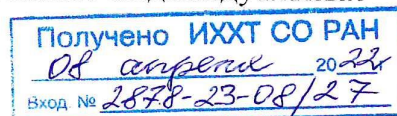 Получено ИХХТ СО РАН
08 апреля 2022г
Вход. № 2878-23-08/27